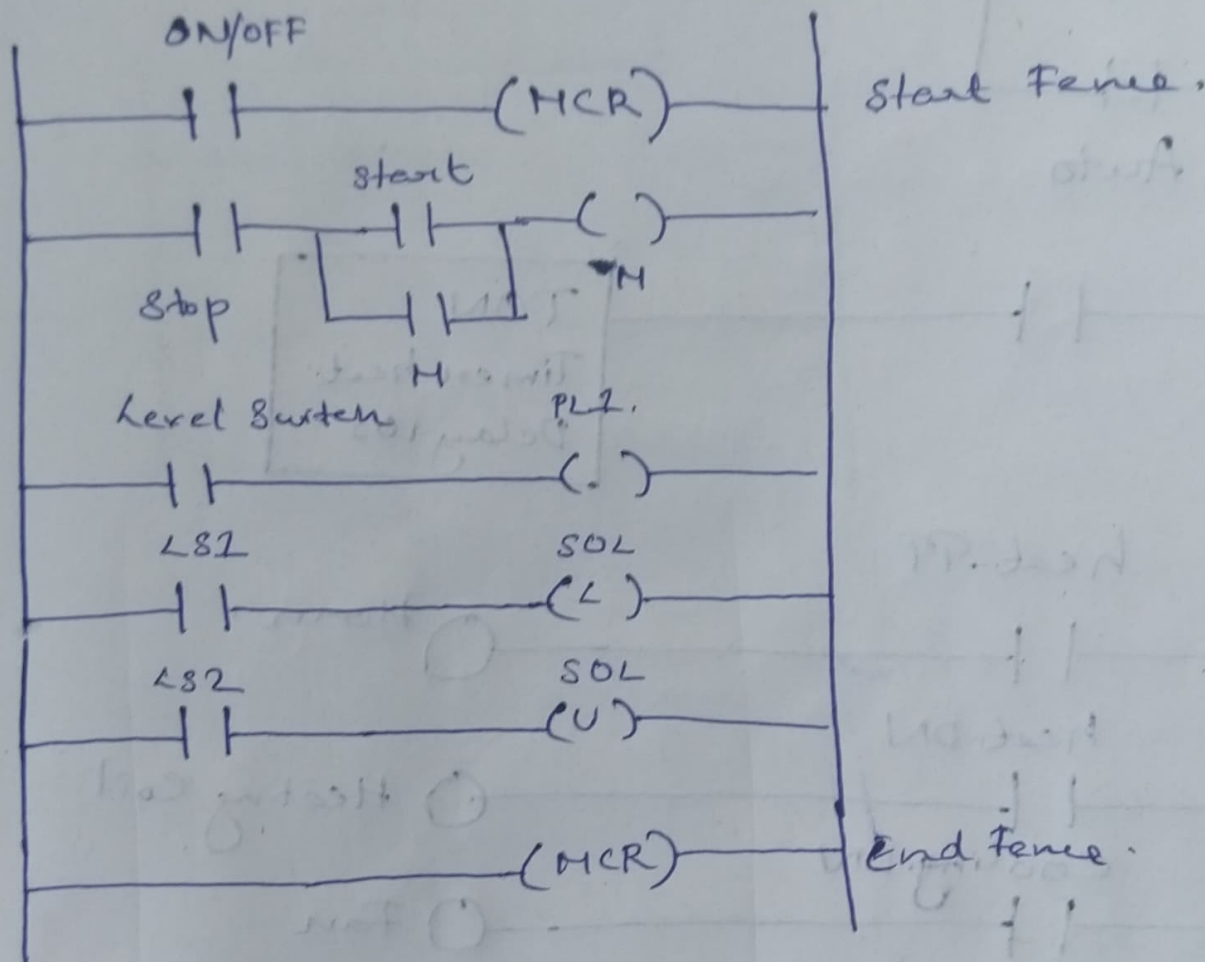 ON/OFF
(MCR) Start Fence.
Start
Stop M
M
Level Switch PL1.
LS1 SOL
(L)
LS2 SOL
(U)
(MCR) End Fence.